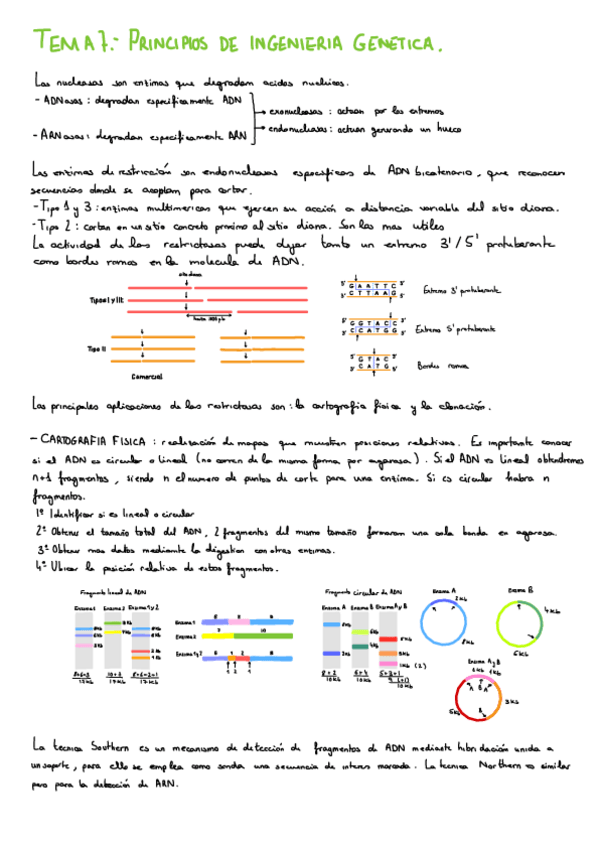 TEMA 7.- PRINCIPIOS DE INGENIERIA GENETICA.
Las nucleasas son enzimas que degradan acidos nucleicos.
- ADNasas: degradan especificamente ADN
→ exonucleasas: actuan por los extremos
→ endonucleasas: actuan generando un hueco
- ARNasas: degradan especificamente ARN
Las enzimas de restricción son endonucleasas especificas de ADN bicatenario, que reconocen
secuencias donde se acoplan para cortar.
- Tipo 1 y 3: enzimas multimericas que ejercen su acción a distancia variable del sitio diana.
- Tipo 2: cortan en un sitio concreto proximo al sitio diana. Son las mas utiles
La actividad de las restrictasas puede dejar tanto un extremo 3'/5' protuberante
como bordes romos en la molecula de ADN.
sitio diana
Tipo I y III:
Tipo II
Comercial
5' G A A T T C 3'
3' C T T A A G 5'
Extremo 3' protuberante
5' G G T A C C 3'
3' C C A T G G 5'
Extremo 5' protuberante
5' G T A C 3'
3' C A T G 5'
Bordes romos
Las principales aplicaciones de las restrictasas son: la cartografia fisica y la clonación.
- CARTOGRAFIA FISICA: realización de mapas que muestren posiciones relativas. Es importante conocer
si el ADN es circular o lineal (no corren de la misma forma por agarosa). Si el ADN es lineal obtendremos
n+1 fragmentos, siendo n el numero de puntos de corte para una enzima. Si es circular habra n
fragmentos.
1º Identificar si es lineal o circular
2º Obtener el tamaño total del ADN, 2 fragmentos del mismo tamaño formaran una sola banda en agarosa.
3º Obtener mas datos mediante la digestion con otras enzimas.
4º Ubicar la posición relativa de estos fragmentos.
Fragmento lineal de ADN
Enzima 1 Enzima 2 Enzima 1 y 2
Enzima 1
Enzima 2
Enzima 1 y 2
Fragmento circular de ADN
Enzima A Enzima B Enzima A y B
10 Kb 10 Kb 10 Kb
Enzima A
2 Kb
8 Kb
Enzima B
4 Kb
6 Kb
Enzima A y B
1 Kb 1 Kb
A B A
5 Kb
3 Kb
B
La tecnica Southern es un mecanismo de detección de fragmentos de ADN mediante hibridación unida a
un soporte, para ello se emplea como sonda una secuencia de interes marcada. La tecnica Northern es similar
pero para la detección de ARN.